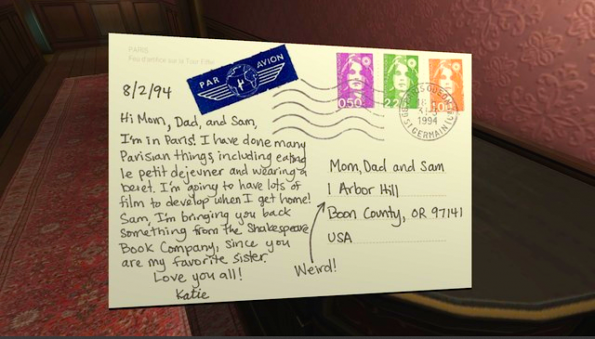 PARIS
PAR AVION
8/2/94
0,50
1994
ST GERMAIN
Hi Mom, Dad, and Sam,
I'm in Paris! I have done many
Parisian things, including eating
le petit dejeuner and wearing a
beret. I'm going to have lots of
film to develop when I get home!
Sam, I'm bringing you back
something from the Shakespeare
Book Company, since you
are my favorite sister.
Love you all!
Katie
Mom, Dad and Sam
1 Arbor Hill
Boon County, OR 97141
USA
Weird!